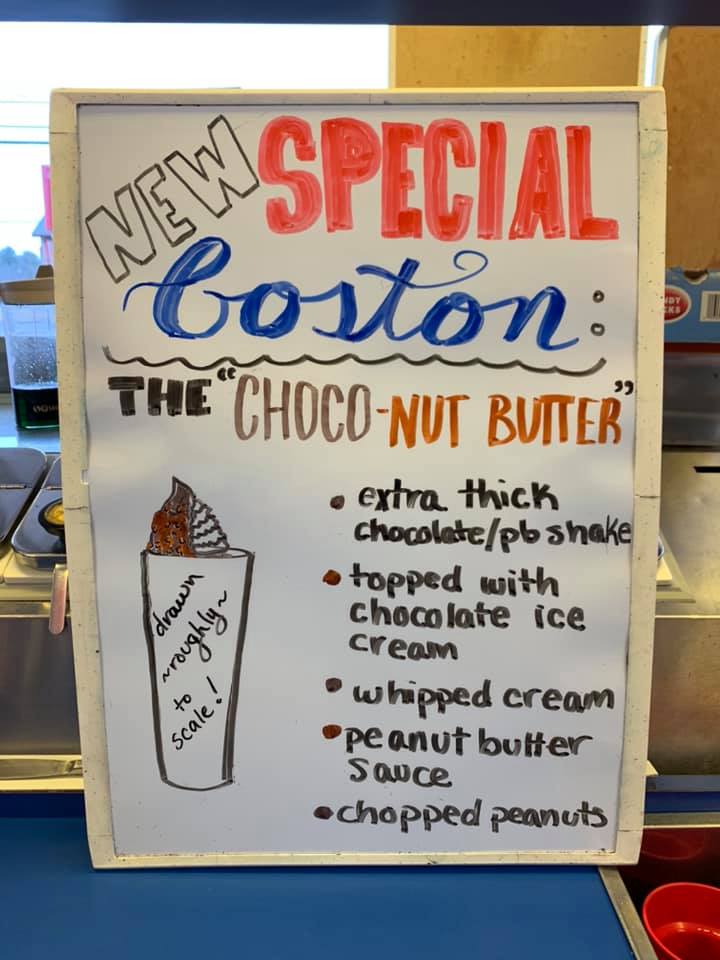 NEW SPECIAL
boston:
THE "CHOCO-NUT BUTTER"
• extra thick
chocolate/pb shake
• topped with
chocolate ice
cream
• whipped cream
• peanut butter
sauce
• chopped peanuts
drawn
~roughly~
to
scale!